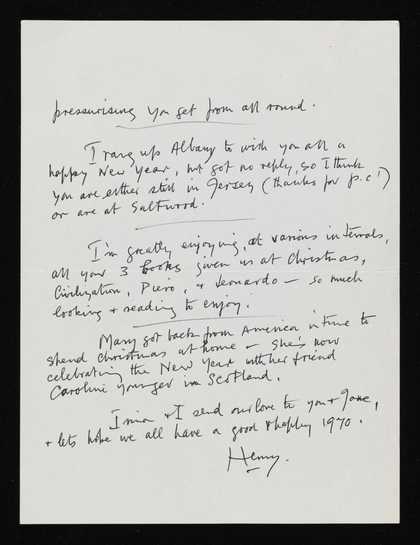 pressurising you get from all round.
I rang up Albany to wish you all a
happy New Year, but got no reply, so I think
you are either still in Jersey (thanks for p.c!)
or are at Saltwood.
I'm greatly enjoying, at various intervals,
all your 3 books given us at Christmas,
Civilization, Piero, + Leonardo – so much
looking + reading to enjoy.
Mary got back from America in time to
spend Christmas at home – she's now
celebrating the New Year with her friend
Caroline Younger in Scotland.
Irina + I send our love to you + Jane,
+ lets hope we all have a good & happy 1970.
Henry.